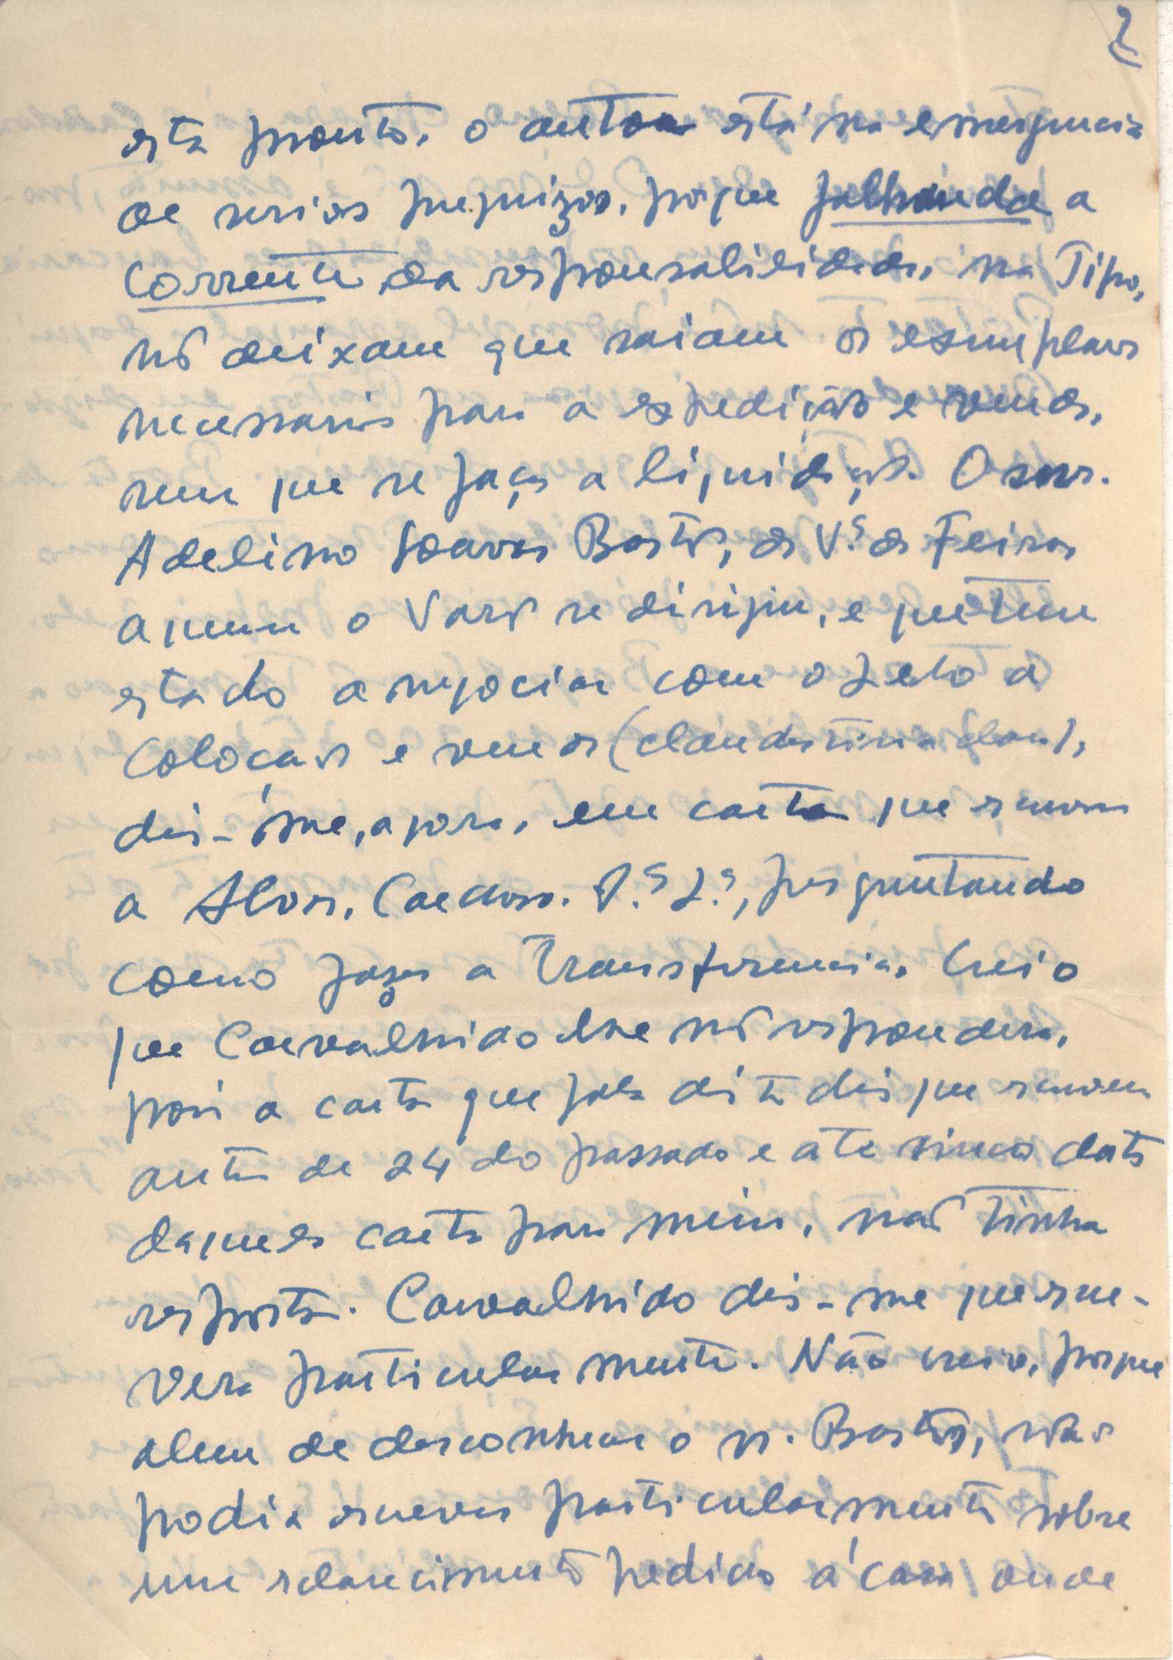 2
está pronto, o autor está na emergencia
de serios prejuizos, porque falhando a
corrente da responsabilidade, na Tipo,
nõ deixam que saiam os exemplares
necessarios para a expedição e venda,
sem que se faça a liquidação. O snr.
Adelino Soares Bastos, da Vª da Feira
a quem o Vasco se dirigiu, e que tem
estado a negociar com o Zelo a
colocação e venda (clandestina claro),
dis-me, agora, em carta que escreveu
a Alvs. Cardoso. Pª Lª, preguntando
como fazer a transferencia. Creio
que Carvalhido lhe nõ respondera,
pois a carta que fala disto dis que escreveu
antes de 24 do passado e ate cinco data
daquela carta para mim, não tinha
resposta. Carvalhido dis-me que escre-
vera particularmente. Não creio, porque
alem de desconhecer o sr. Bastos, não
podia escrever particularmente sobre
um esclarecimento pedido á casa onde